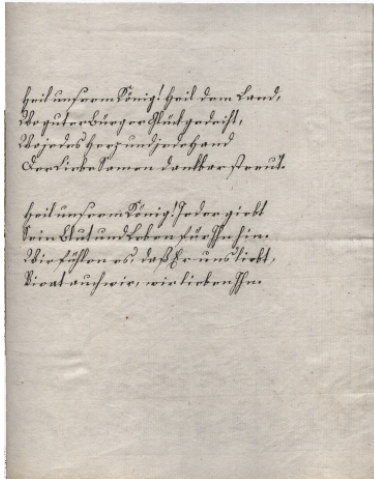 Heil unserm König! Heil dem Land,
Wo guter Bürger Glück gedeiht,
Wo jedes Herz und jede Hand
Der Liebe Samen dankbar streut.
Heil unserm König! Jeder giebt
Sein Blut und Leben für Ihn hin.
Wir fühlen es, daß Er uns liebt,
auch wir, wir lieben Ihn.